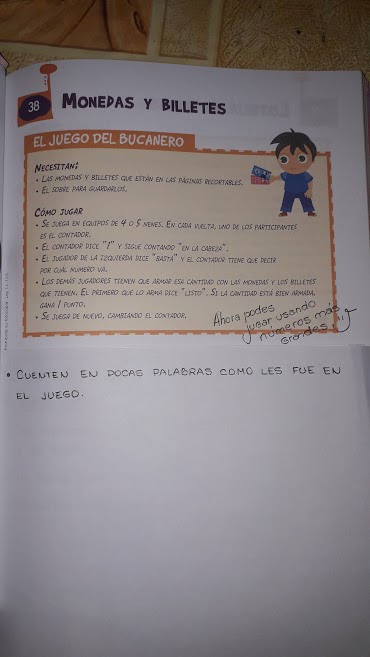 38 MONEDAS Y BILLETES
EL JUEGO DEL BUCANERO
NECESITAN:
• LAS MONEDAS Y BILLETES QUE ESTÁN EN LAS PÁGINAS RECORTABLES.
• EL SOBRE PARA GUARDARLOS.
CÓMO JUGAR
• SE JUEGA EN EQUIPOS DE 4 O 5 NENES. EN CADA VUELTA, UNO DE LOS PARTICIPANTES
ES EL CONTADOR.
• EL CONTADOR DICE "1" Y SIGUE CONTANDO "EN LA CABEZA".
• EL JUGADOR DE LA IZQUIERDA DICE "BASTA" Y EL CONTADOR TIENE QUE DECIR
POR CUÁL NÚMERO VA.
• LOS DEMÁS JUGADORES TIENEN QUE ARMAR ESA CANTIDAD CON LAS MONEDAS Y LOS BILLETES
QUE TIENEN. EL PRIMERO QUE LO ARMA DICE "LISTO". SI LA CANTIDAD ESTÁ BIEN ARMADA,
GANA 1 PUNTO.
• SE JUEGA DE NUEVO, CAMBIANDO EL CONTADOR.
Ahora podes
jugar usando
números más
grandes!!
• CUENTEN EN POCAS PALABRAS COMO LES FUE EN
EL JUEGO.